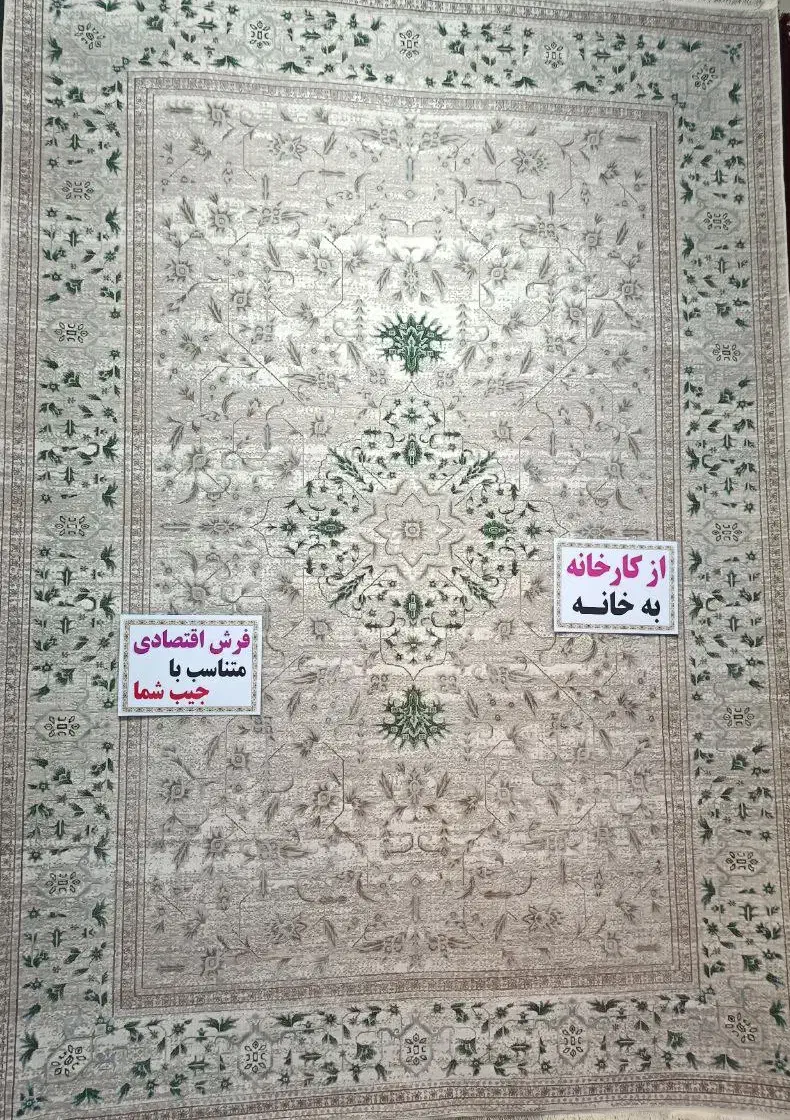 از کارخانه
به خانــه
فرش اقتصادی
متناسب با
جیب شما